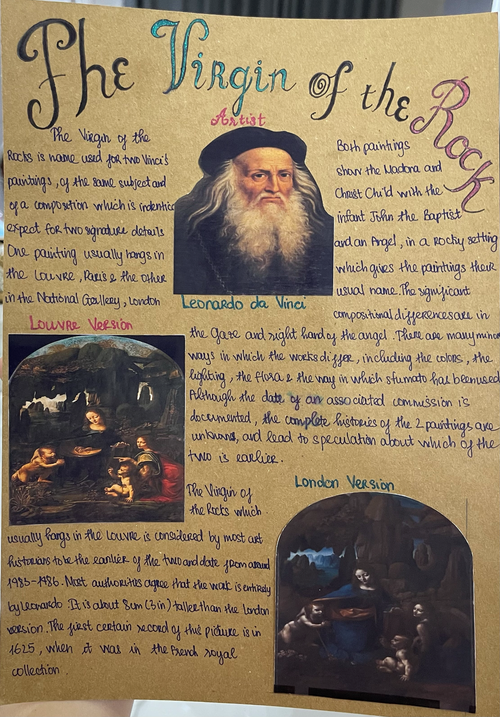 The Virgin of the Rock
Artist
The Virgin of the
Rocks is name used for two Vinci's
paintings, of the same subject and
of a composition which is indentic
expect for two signature details
One painting usually hangs in
the Louvre, Paris & the other
in the National Gallery, London
Leonardo da Vinci
Both paintings
show the Madona and
Christ Child with the
infant John the Baptist
and an Angel, in a Rocky setting
which gives the paintings their
usual name. The significant
compositional differences are in
the gaze and right hand of the angel. There are many minor
ways in which the works differ, including the colors, the
lighting, the flora & the way in which sfumato has been used
Although the date of an associated commission is
documented, the complete histories of the 2 paintings are
unknown, and lead to speculation about which of the
two is earlier.
Louvre Version
The Virgin of
the Rocks which
usually hangs in the Louvre is considered by most art
historians to be the earlier of the two and date from around
1483-1486. Most authorities agree that the work is entirely
by Leonardo. It is about 8cm (3 in) taller than the London
version. The first certain record of this picture is in
1625, when it was in the French royal
collection.
London Version